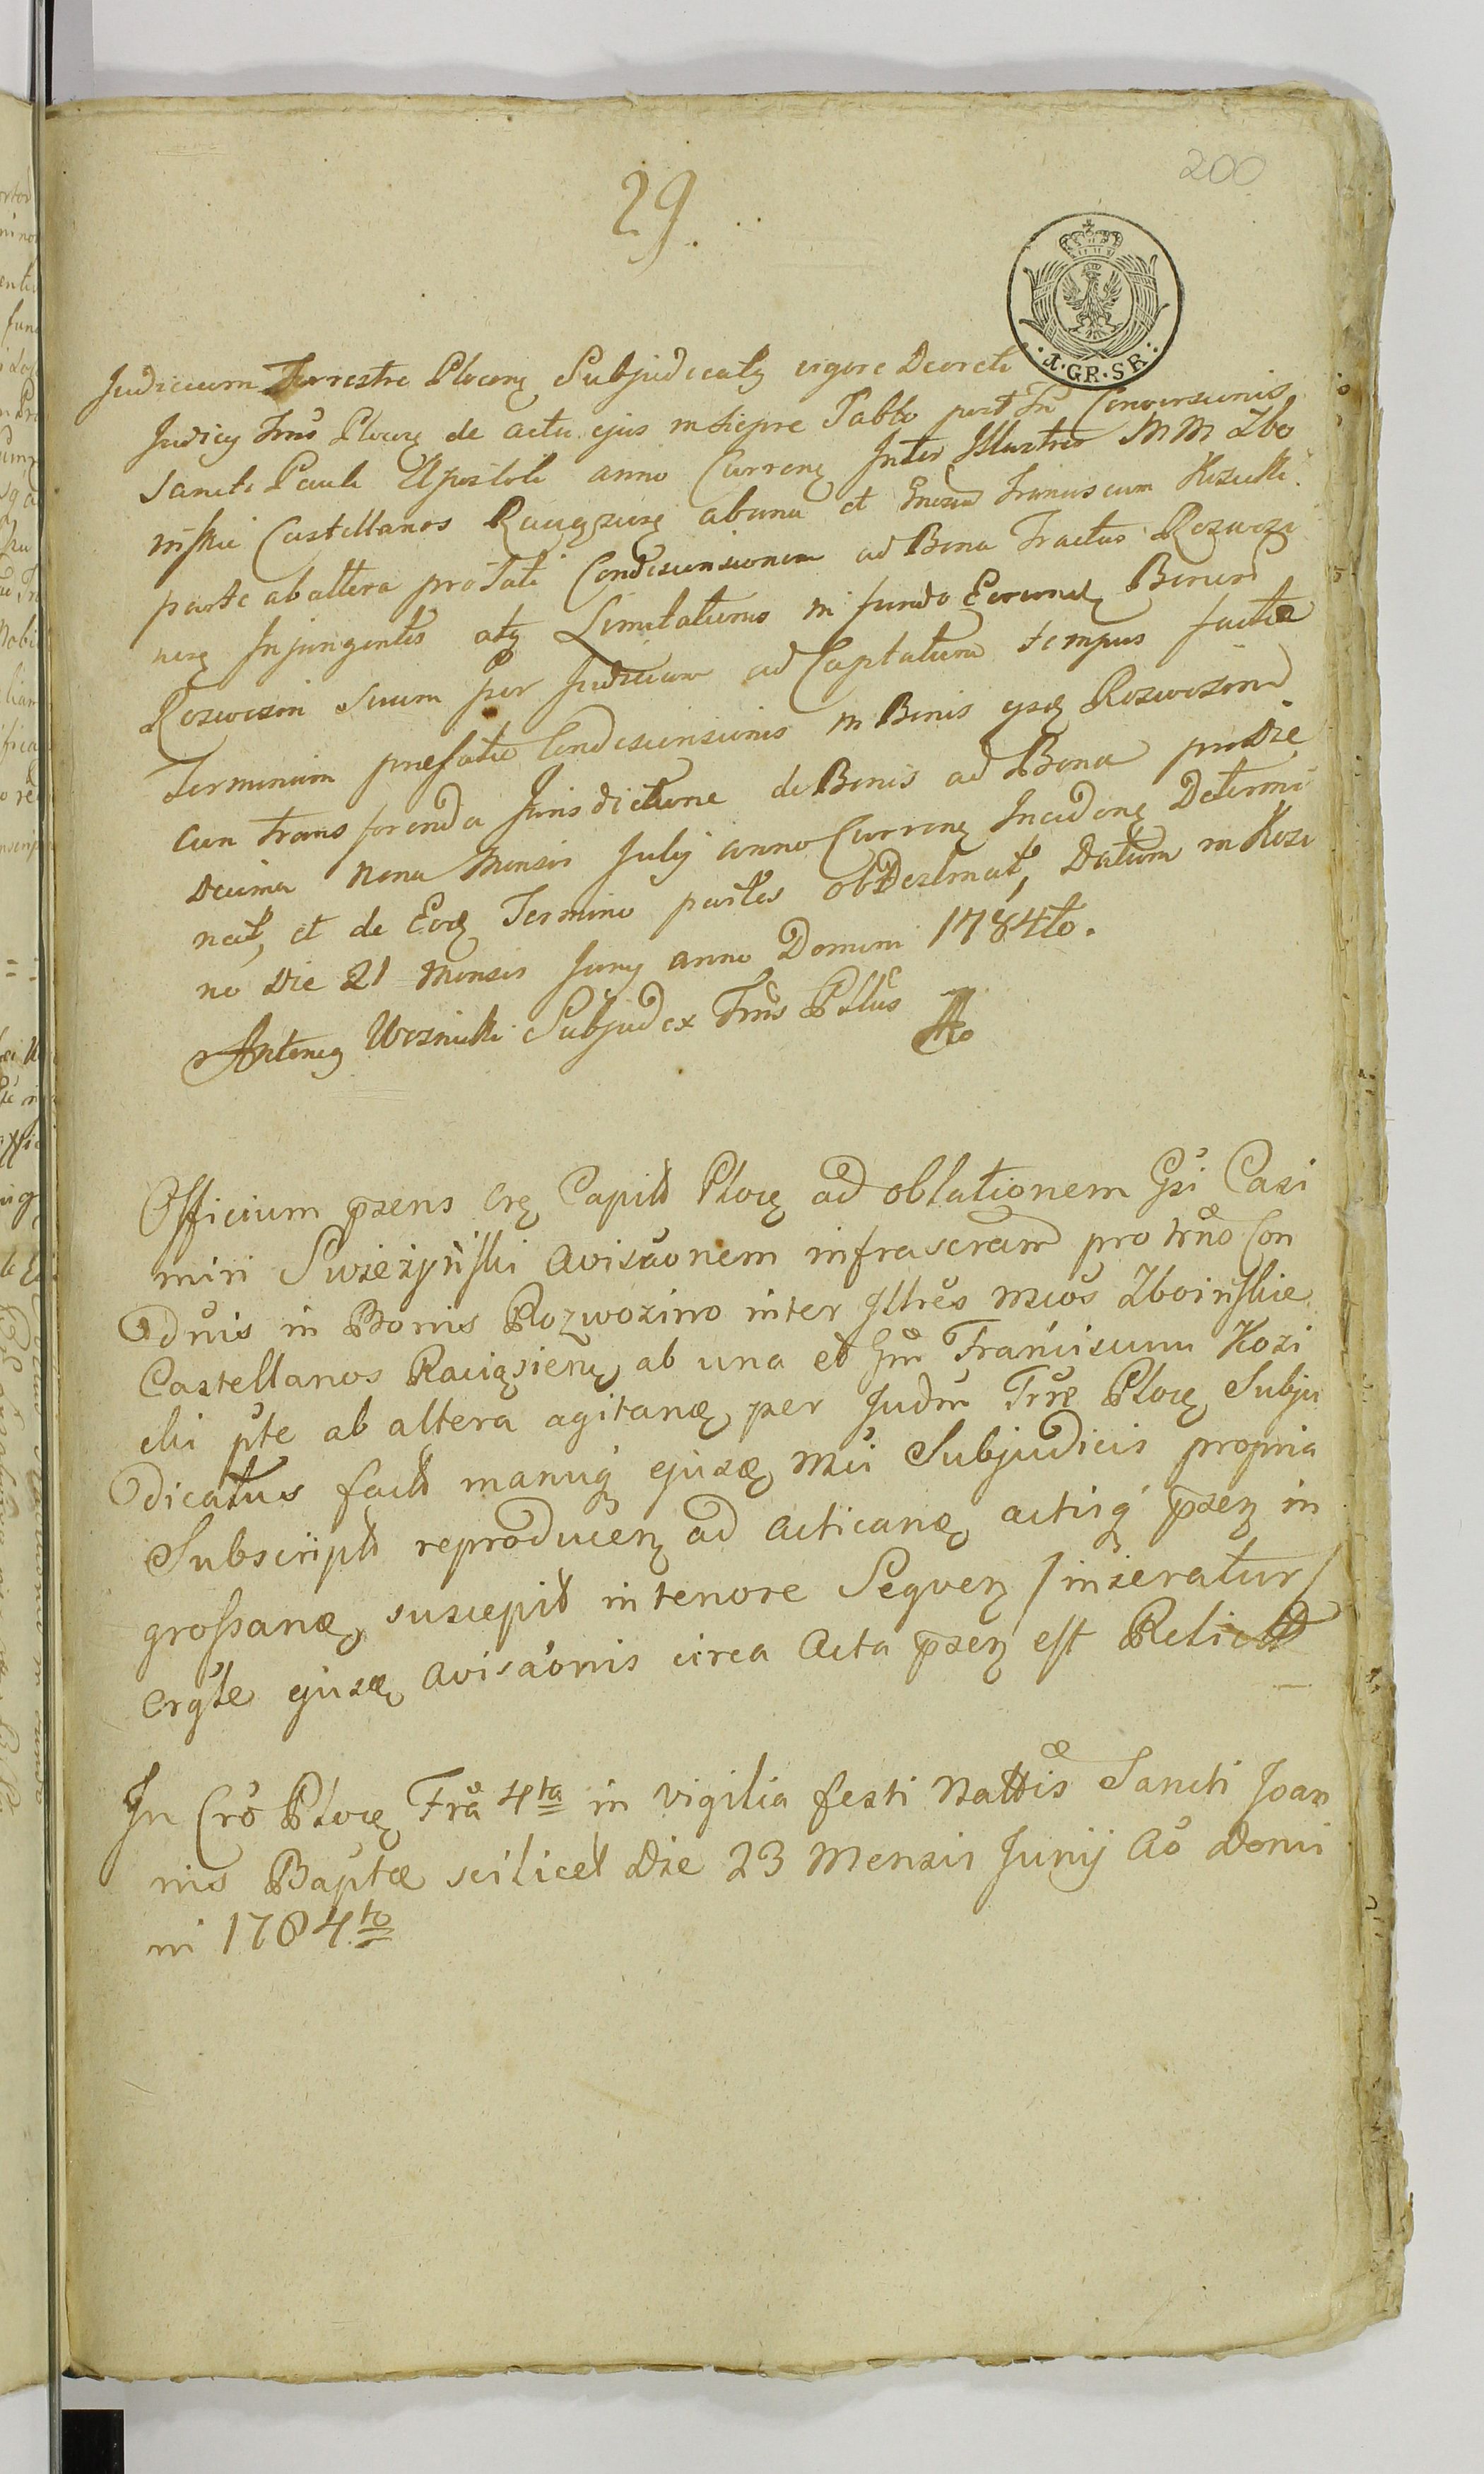 29.
200
A·GR·SR·
Judicium Terrestre Plocen̄ Subjudicatq vigore Decreti
Judicy Trrīs Plocen̄ de actu ejus in Sieprc Sabbo post Fm Conversionis
Sancti Pauli Apostoli anno Curren̄ Inter Illustres MM Zbo
inskie Castellanos Raciązien̄ ab una et Franciscum Kozicki
parte ab altera prolati Condescensionem ad Bona Tractus Rozwozi
nen̄ Injungentis atq Limitationis in fundo Bonord
Rozwozin Suum per Judicium ad Captatum tempus factæ
Terminum præfatæ Condescensionis in Bonis Rozwozino
cum transferenda Jurisdictione de Bonis ad Bona pro Die
Decima Nona Mensis July anno Curren̄ Inciden̄ Determi
nat, et de Eoq Termino partes obDestinat, Datum in Kozi
no Die 21 Mensis Juny anno Domini 1784to.
Antoniq Woznicki Subjudex Trrīs Pllūs
Officium p̄sens Cr̄ę Capit̄ Ploc̄ę ad oblationem Gsi Cazi
miri Swiezyński Avisāonem infrascram̄ pro tr̄no Con
Dn̄is in Bonis Rozwozino inter Illres Mcos Zboinskie
Castellanos Raciązien̄ ab una et Gm Franciscum Kozi
cki pte ab altera agitanæ per Judm Trre Ploc̄ę Subju
Dicatus fact̄ manuq ejusæ Mci Subjudicis propria
Subscript̄ reproducen̄ ad acticanæ actisq p̄sen̄ in
grossanæ suscepit in tenore Seqven̄ /inseratur/
Orgle ejusæ avisāonis circa Acta p̄sen̄ est Relict̄
In Cr̄o Ploc̄ę Fr̄a 4ta in vigilia festi Nattis Sancti Joan
nis Baptæ scilicet Die 23 Mensis Junij Aō Domi
ni 1784to